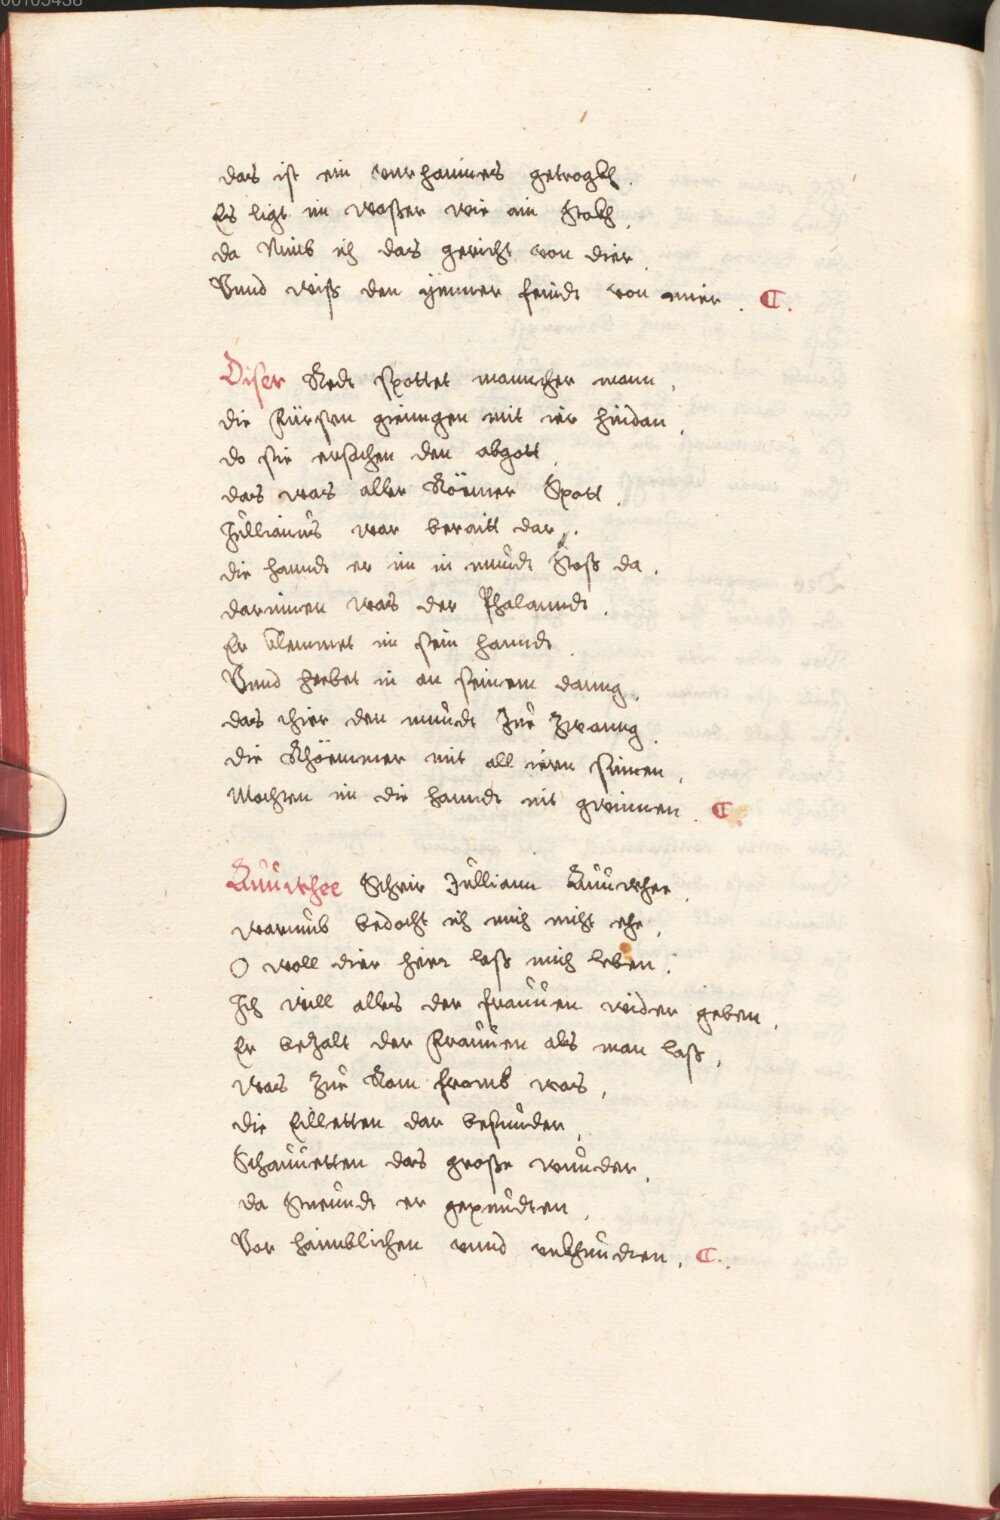 das ist ein vnrhaines getrogkh.
Es ligt im waßer wie ain Stokh.
da Nimb ich das gericht von dier.
Vnnd wiß den yenner feindt von mier. C.
Diser Redt spottet mannicher mann,
die Fürsten giengen mit ier hindan,
do sie ersachen den abgott,
das was aller Röemer Spott.
Jullianus war beraitt dar,.
die hanndt er im in mundt Stoß da.
darinnen was der Vhalanndt.
Er klemmet im sein hanndt.
Vnnd herbet in an seinem danng,
das thier den mundt Zue Zwanng.
die Rhöemmer mit all iern sinnen,
Mochten im die hanndt nit gwinnen. C.
Auuwhee Schrie Jullian Auuwhee,
warumb bedacht ich mich nicht ehe,
O woll dier herr laß mich leben.
Ich will alles der frauuen wider geben,
Er beZalt der Frauuen als man laß,
was Zue Rom fromb was,
die Eilletten dar besunder,
Schauuetten das große wunder.
da Stuundt er gepundten,
Vor haimblichen vnnd vrkhundten. C.